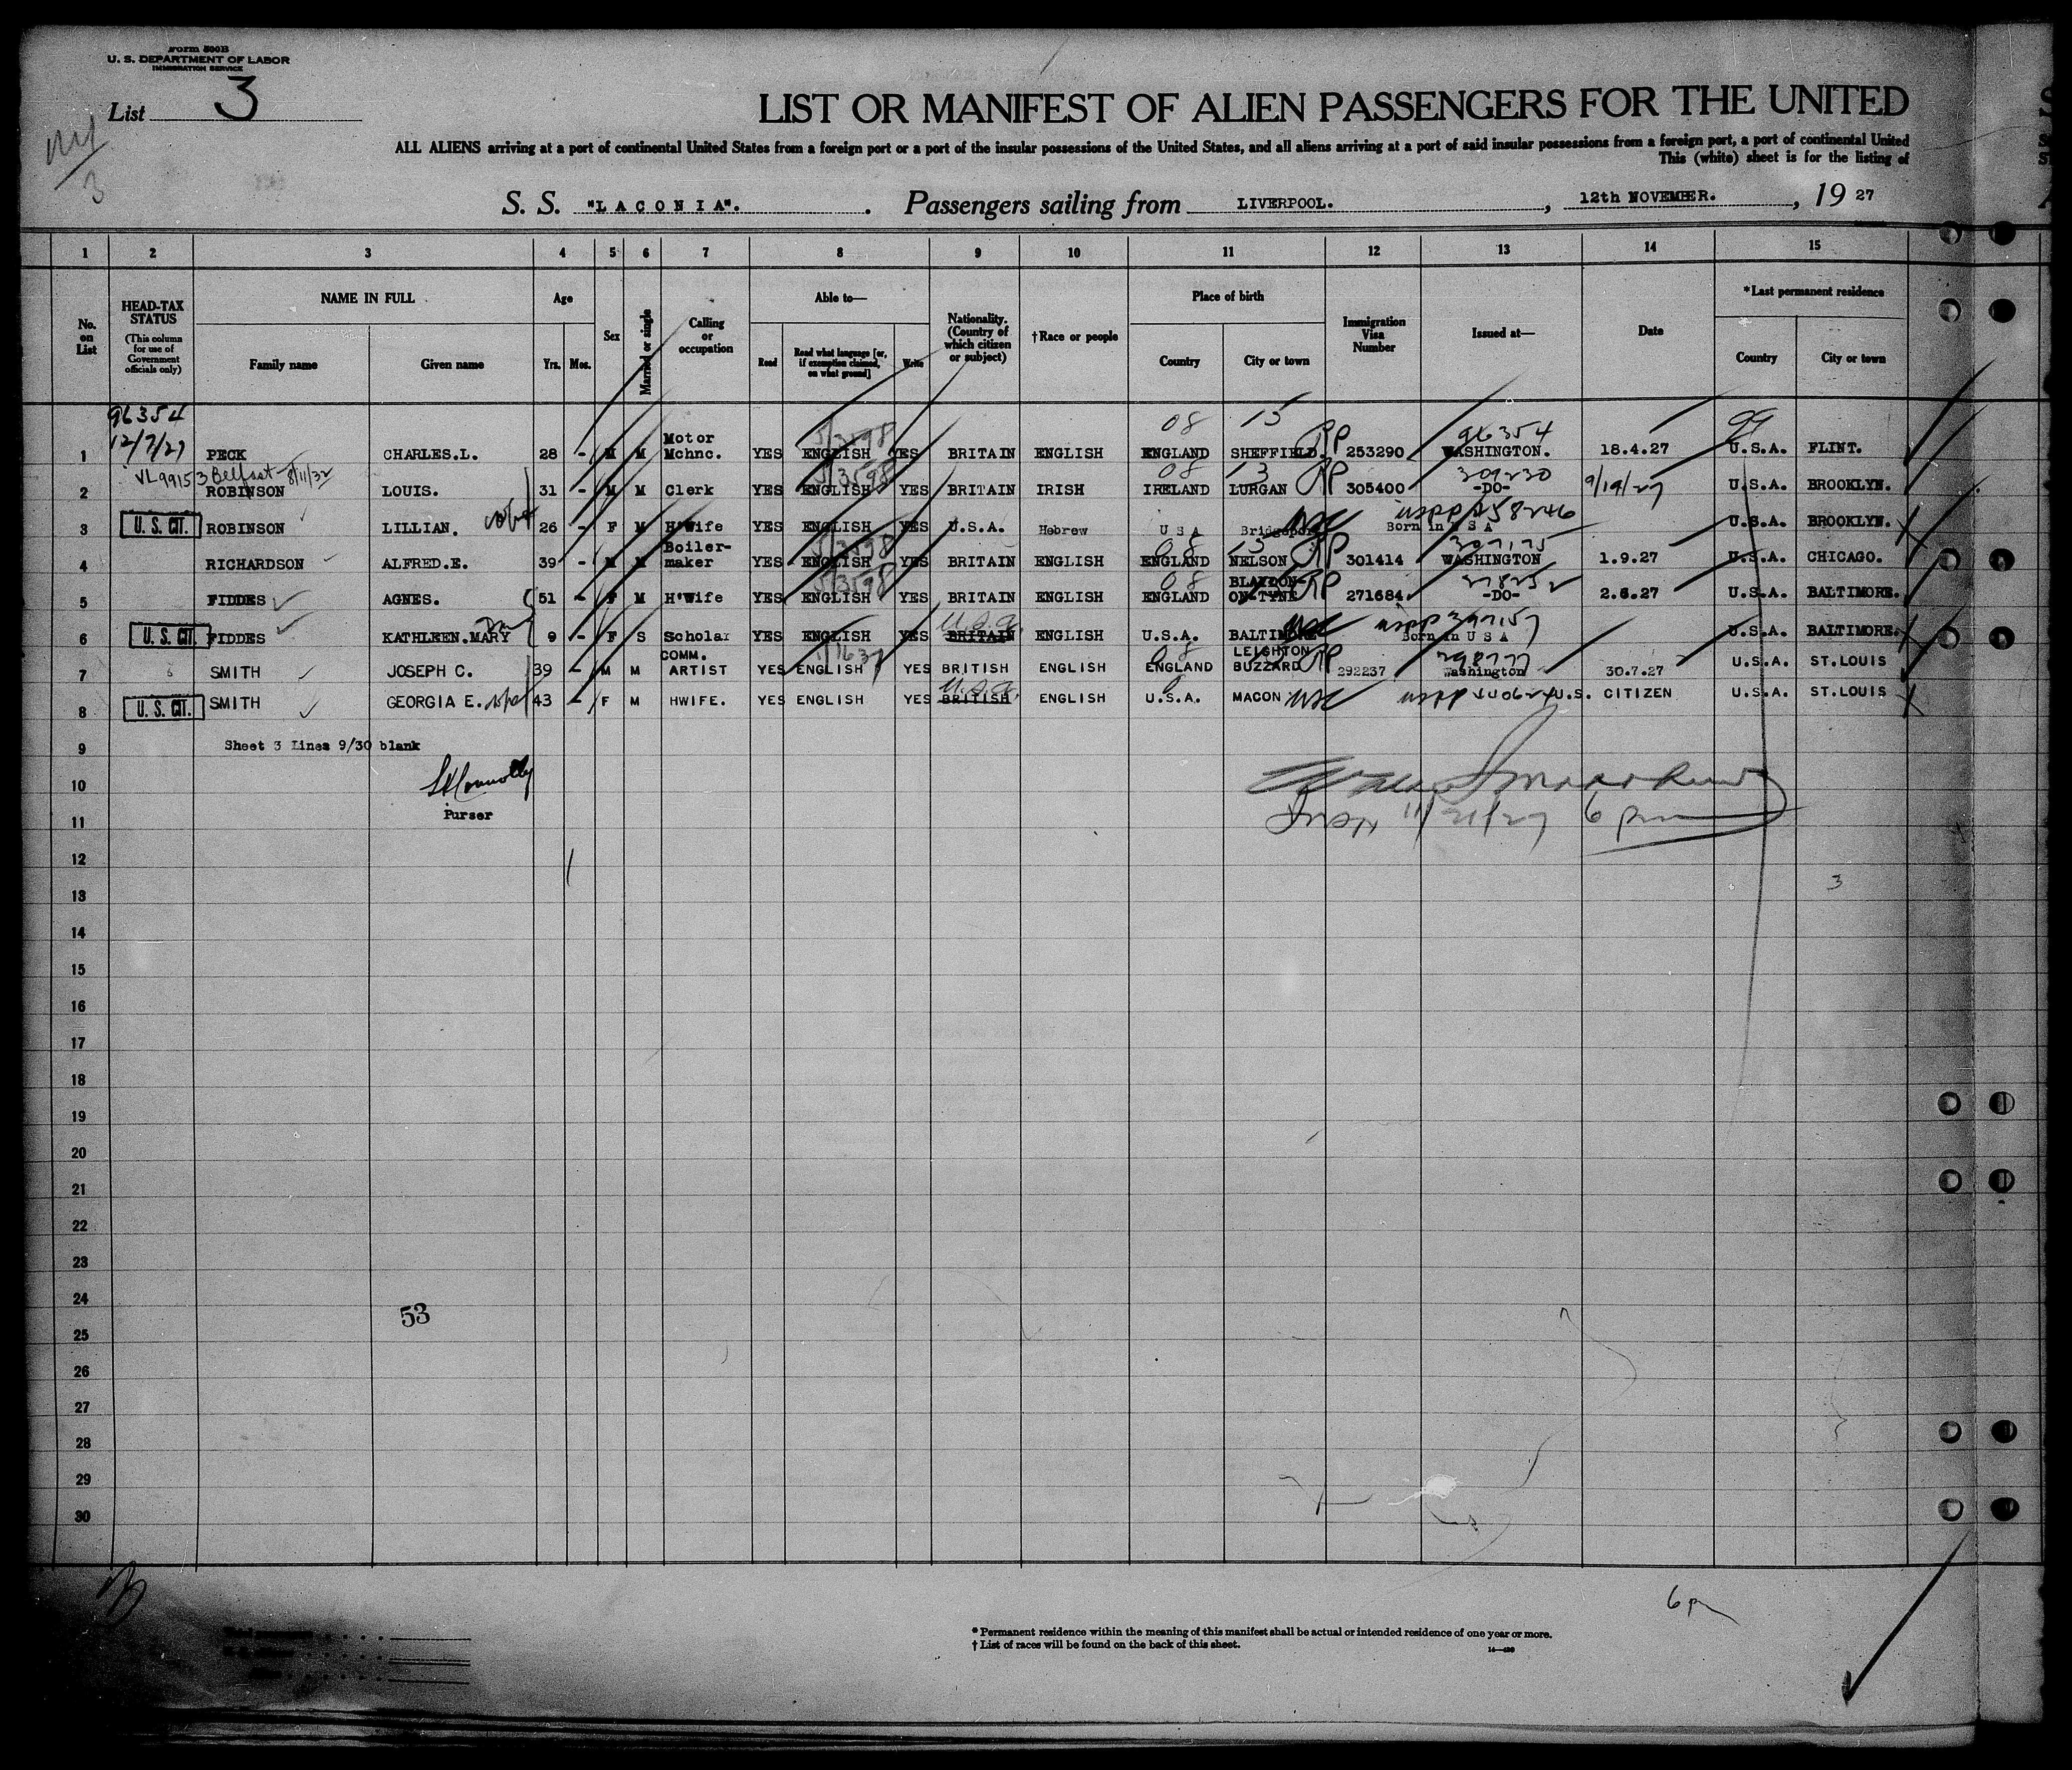 Form 500B
U. S. DEPARTMENT OF LABOR
IMMIGRATION SERVICE
List 3
3
LIST OR MANIFEST OF ALIEN PASSENGERS FOR THE UNITED
ALL ALIENS arriving at a port of continental United States from a foreign port or a port of the insular possessions of the United States, and all aliens arriving at a port of said insular possessions from a foreign port, a port of continental United
This (white) sheet is for the listing of
S. S. "LACONIA". Passengers sailing from LIVERPOOL. , 12th NOVEMBER. , 19 27
1 2 3 4 5 6 7 8 9 10 11 12 13 14 15
No. on List
HEAD-TAX STATUS
(This column for use of Government officials only)
NAME IN FULL
Family name
Given name
Age
Yrs. Mos.
Sex
Married or single
Calling or occupation
Able to—
Read
Read what language [or, if exemption claimed, on what ground]
Write
Nationality. (Country of which citizen or subject)
†Race or people
Place of birth
Country
City or town
Immigration Visa Number
Issued at—
Date
*Last permanent residence
Country
City or town
96354
12/7/27
08 15 99
5/3598 PP 96354
1 PECK CHARLES.L. 28 - M M Motor Mchnc. YES ENGLISH YES BRITAIN ENGLISH ENGLAND SHEFFIELD. 253290 WASHINGTON. 18.4.27 U.S.A. FLINT.
VL99153 Belfast 8/11/32
5/3598 08 13 PP 309230
2 ROBINSON LOUIS. 31 - M M Clerk YES ENGLISH YES BRITAIN IRISH IRELAND LURGAN 305400 -DO- 9/19/27 U.S.A. BROOKLYN.
3 U. S. CIT. ROBINSON LILLIAN. 26 - F M H'Wife YES ENGLISH YES U.S.A. Hebrew U S A Bridgeport Born in U S A U.S.A. BROOKLYN.
5/3598 08 13 PP 307175
4 RICHARDSON ALFRED.E. 39 - M M Boiler-maker YES ENGLISH YES BRITAIN ENGLISH ENGLAND NELSON 301414 WASHINGTON 1.9.27 U.S.A. CHICAGO.
5/3598 08 PP
5 FIDDES AGNES. 51 - F M H'Wife YES ENGLISH YES BRITAIN ENGLISH ENGLAND BLAYDON-ON-TYNE 271684 -DO- 2.8.27 U.S.A. BALTIMORE.
U.S.A.
6 U. S. CIT. FIDDES KATHLEEN.MARY 9 - F S Scholar YES ENGLISH YES BRITAIN ENGLISH U.S.A. BALTIMORE Born in U S A U.S.A. BALTIMORE.
08 PP 298777
7 SMITH JOSEPH C. 39 - M M COMM. ARTIST YES ENGLISH YES BRITISH ENGLISH ENGLAND LEIGHTON BUZZARD 292237 Washington 30.7.27 U.S.A. ST.LOUIS
U.S.A.
8 U. S. CIT. SMITH GEORGIA E. 43 - F M HWIFE. YES ENGLISH YES BRITISH ENGLISH U.S.A. MACON U.S. CITIZEN U.S.A. ST.LOUIS
9 Sheet 3 Lines 9/30 blank
10
Purser
11 11/21/27 6 pm
12
13 3
14
15
16
17
18
19
20
21
22
23
24 53
25
26
27
28
29
30
6 pm
* Permanent residence within the meaning of this manifest shall be actual or intended residence of one year or more.
† List of races will be found on the back of this sheet.